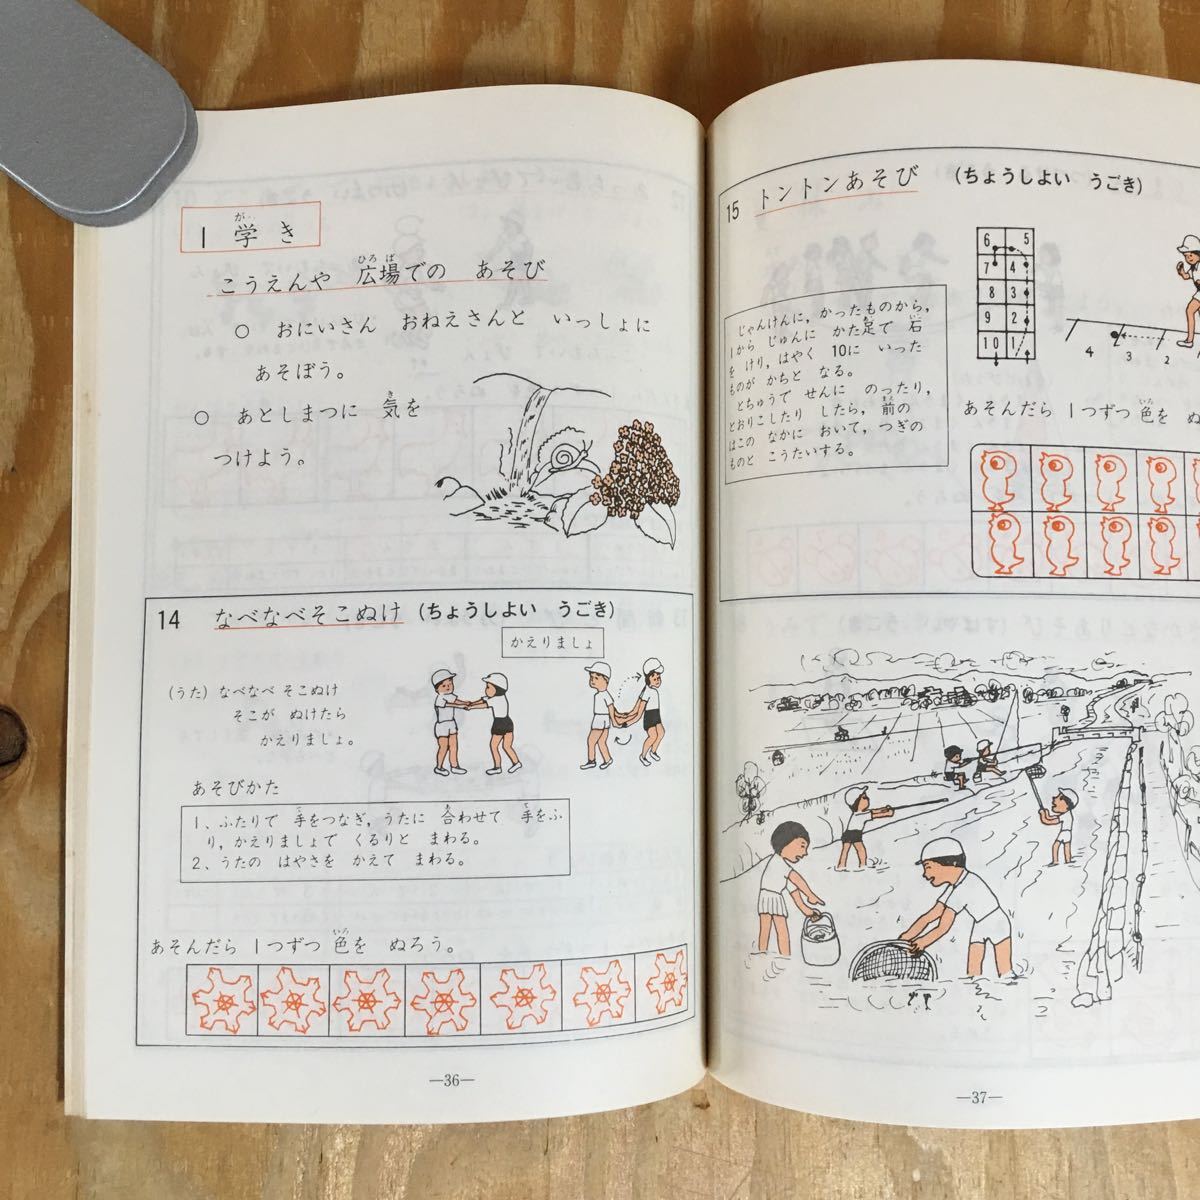 1 学き
こうえんや 広場での あそび
○ おにいさん おねえさんと いっしょに
あそぼう。
○ あとしまつに 気を
つけよう。
14 なべなべそこぬけ (ちょうしよい うごき)
かえりましょ
(うた) なべなべ そこぬけ
そこが ぬけたら
かえりましょ。
あそびかた
1、ふたりで 手をつなぎ,うたに 合わせて 手をふ
り,かえりましょで くるりと まわる。
2、うたの はやさを かえて まわる。
あそんだら 1つずつ 色を ぬろう。
—36—
15 トントンあそび (ちょうしよい うごき)
6 5
7 4
8 3
9 2
10 1
4 3 2
じゃんけんに,かったものから,
1から じゅんに かた足で 石
を けり,はやく 10に いった
ものが かちと なる。
とちゅうで せんに のったり,
とおりこしたり したら,前の
はこの なかに おいて,つぎの
ものと こうたいする。
あそんだら 1つずつ 色を ぬ
—37—